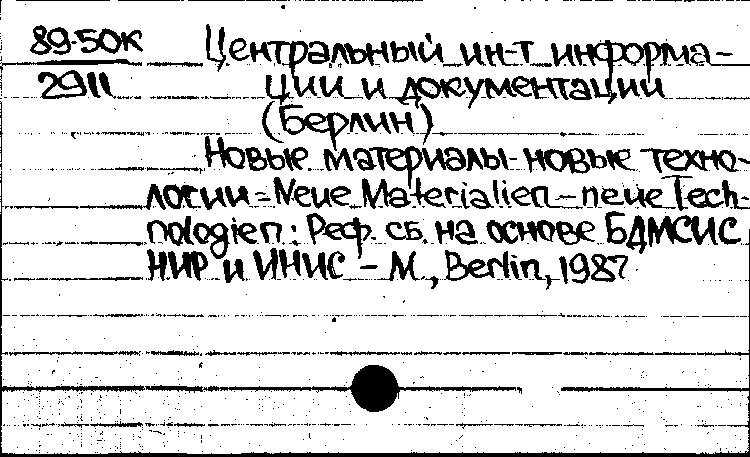 89-50К
2911
Центральный ин-т информа-
ции и документации
(Берлин)
Новые материалы-новые техно-
логии = Neue Materialien - neue Tech-
nologien: Реф. сб. на основе БДМСИС
НИР и ИНИС - М., Berlin, 1987